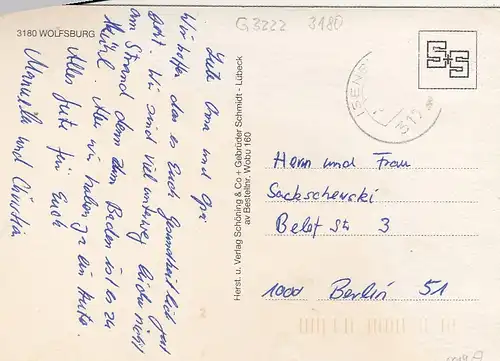 G3222 3180
3180 WOLFSBURG
Liebe Oma und Opi
Wir hoffen das es Euch gesundheitlich gut
geht. Wir sind viel unterwegs leider nicht
am Strand denn zum Baden ist es zu
kühl. Aber wir haben ja ein Auto.
Alles Gute für Euch
Manuela und Christian
Herst. u. Verlag Schöning & Co + Gebrüder Schmidt - Lübeck
av Bestellnr. Wobu 160
S+S
ISEN
31.7
Herrn und Frau
Sackschewski
Belef Str 3
1000 Berlin 51